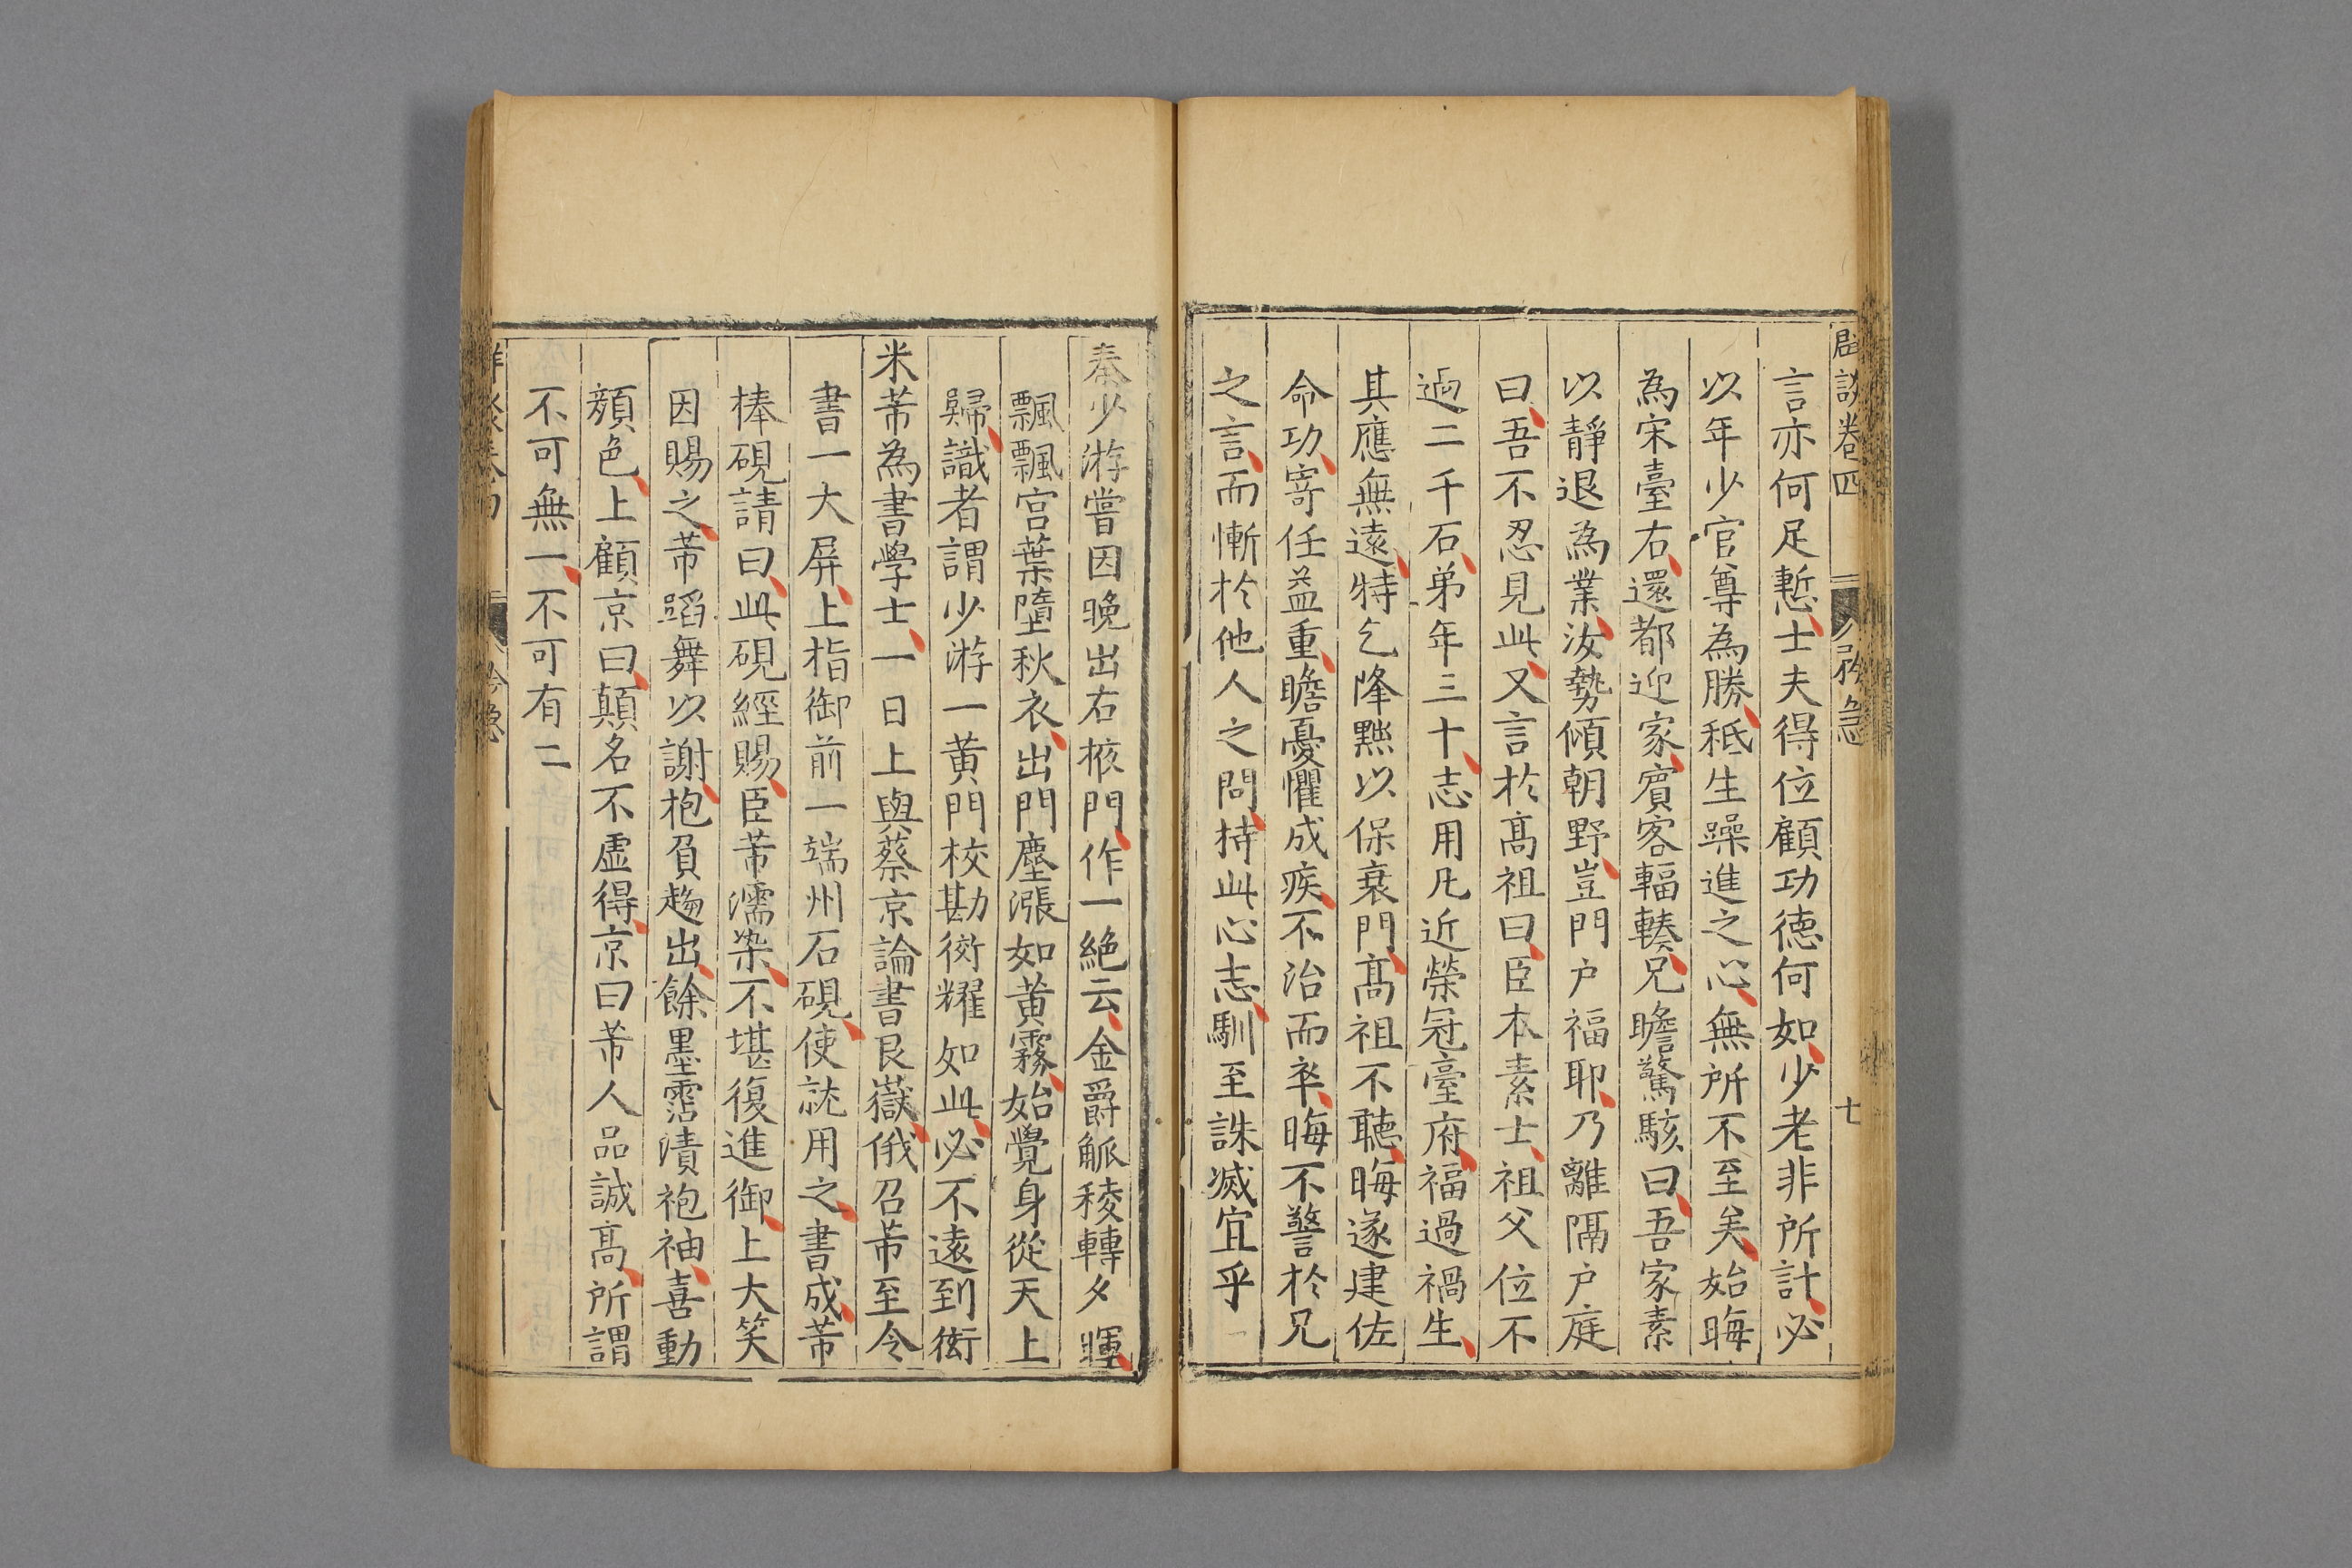 言亦何足慙士夫得位顧功德何如少老非所計必
以年少官尊為勝秪生躁進之心無所不至矣始晦
為宋臺右還都迎家賓客輻輳兄瞻驚駭曰吾家素
以靜退為業汝勢傾朝野豈門户福耶乃離隔户庭
曰吾不忍見此又言於髙祖曰臣本素士祖父位不
過二千石弟年三十志用凡近榮冠臺府福過禍生
其應無遠特乞降黜以保衰門髙祖不聽晦遂建佐
命功寄任益重瞻憂懼成疾不治而卒晦不警於兄
之言而慚於他人之問持此心志馴至誅滅宜乎
卷四 矜急 七
秦少游嘗因晚出右掖門作一絶云金爵觚稜轉夕暉
飄飄宫葉墮秋衣出門塵漲如黄霧始覺身從天上
歸識者謂少游一黄門校勘衒耀如此必不遠到衒
米芾為書學士一日上與蔡京論書艮嶽俄召芾至令
書一大屏上指御前一端州石硯使就用之書成芾
棒硯請曰此硯經賜臣芾濡染不堪復進御上大笑
因賜之芾蹈舞以謝抱負趨出餘墨霑漬袍袖喜動
顔色上顧京曰顛名不虚得京曰芾人品誠髙所謂
不可無一不可有二
八